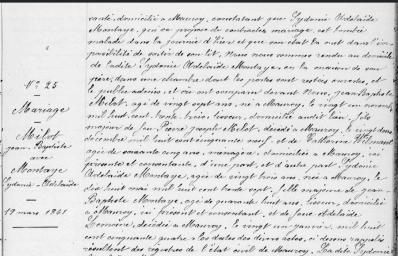 santé, domiciliée à Maurois, constatant que Sydonie Adélaïde
Montaye, qui se propose de contracter mariage, est tombée
malade dans la journée d'hier et que son état la met dans l'im-
possibilité de sortir de son lit, Nous nous sommes rendu au domicile
de ladite Sydonie Adélaïde Montaye, en la maison de son
père, dans une chambre dont les portes sont restées ouvertes, et
le public admis, et où ont comparu devant Nous, jean Baptiste
Mélot, agé de vingt sept ans, né à Maurois, le vingt un
mil huit cent trente trois, tisseur, domicilié audit lieu, fils
majeur de feu joseph Mélot, décédé à Maurois, le vingt
décembre mil huit cent cinquante neuf, et de Catherine
agée de cinquante cinq ans, ménagère, domiciliée à Maurois,
présente et consentante, d'une part, et d'autre part, Sydonie
Adélaïde Montaye, agée de vingt trois ans, née à Maurois, le
dix huit mai mil huit cent trente sept, fille majeure de jean-
Baptiste Montaye, agé de quarante huit ans, tisseur, domicilié
à Maurois, ici présent et consentant, et de feue Adélaïde
Lemoine, décédée à Maurois, le vingt un janvier mil huit
cent cinquante quatre. Les dates des divers actes, ci dessus rappelés
résultent des registres de l'état civil de Maurois. Ladite Sydonie
N° 25
Mariage
Mélot
jean-Baptiste
avec
Montaye
Sydonie-Adélaïde
19 mars 1861